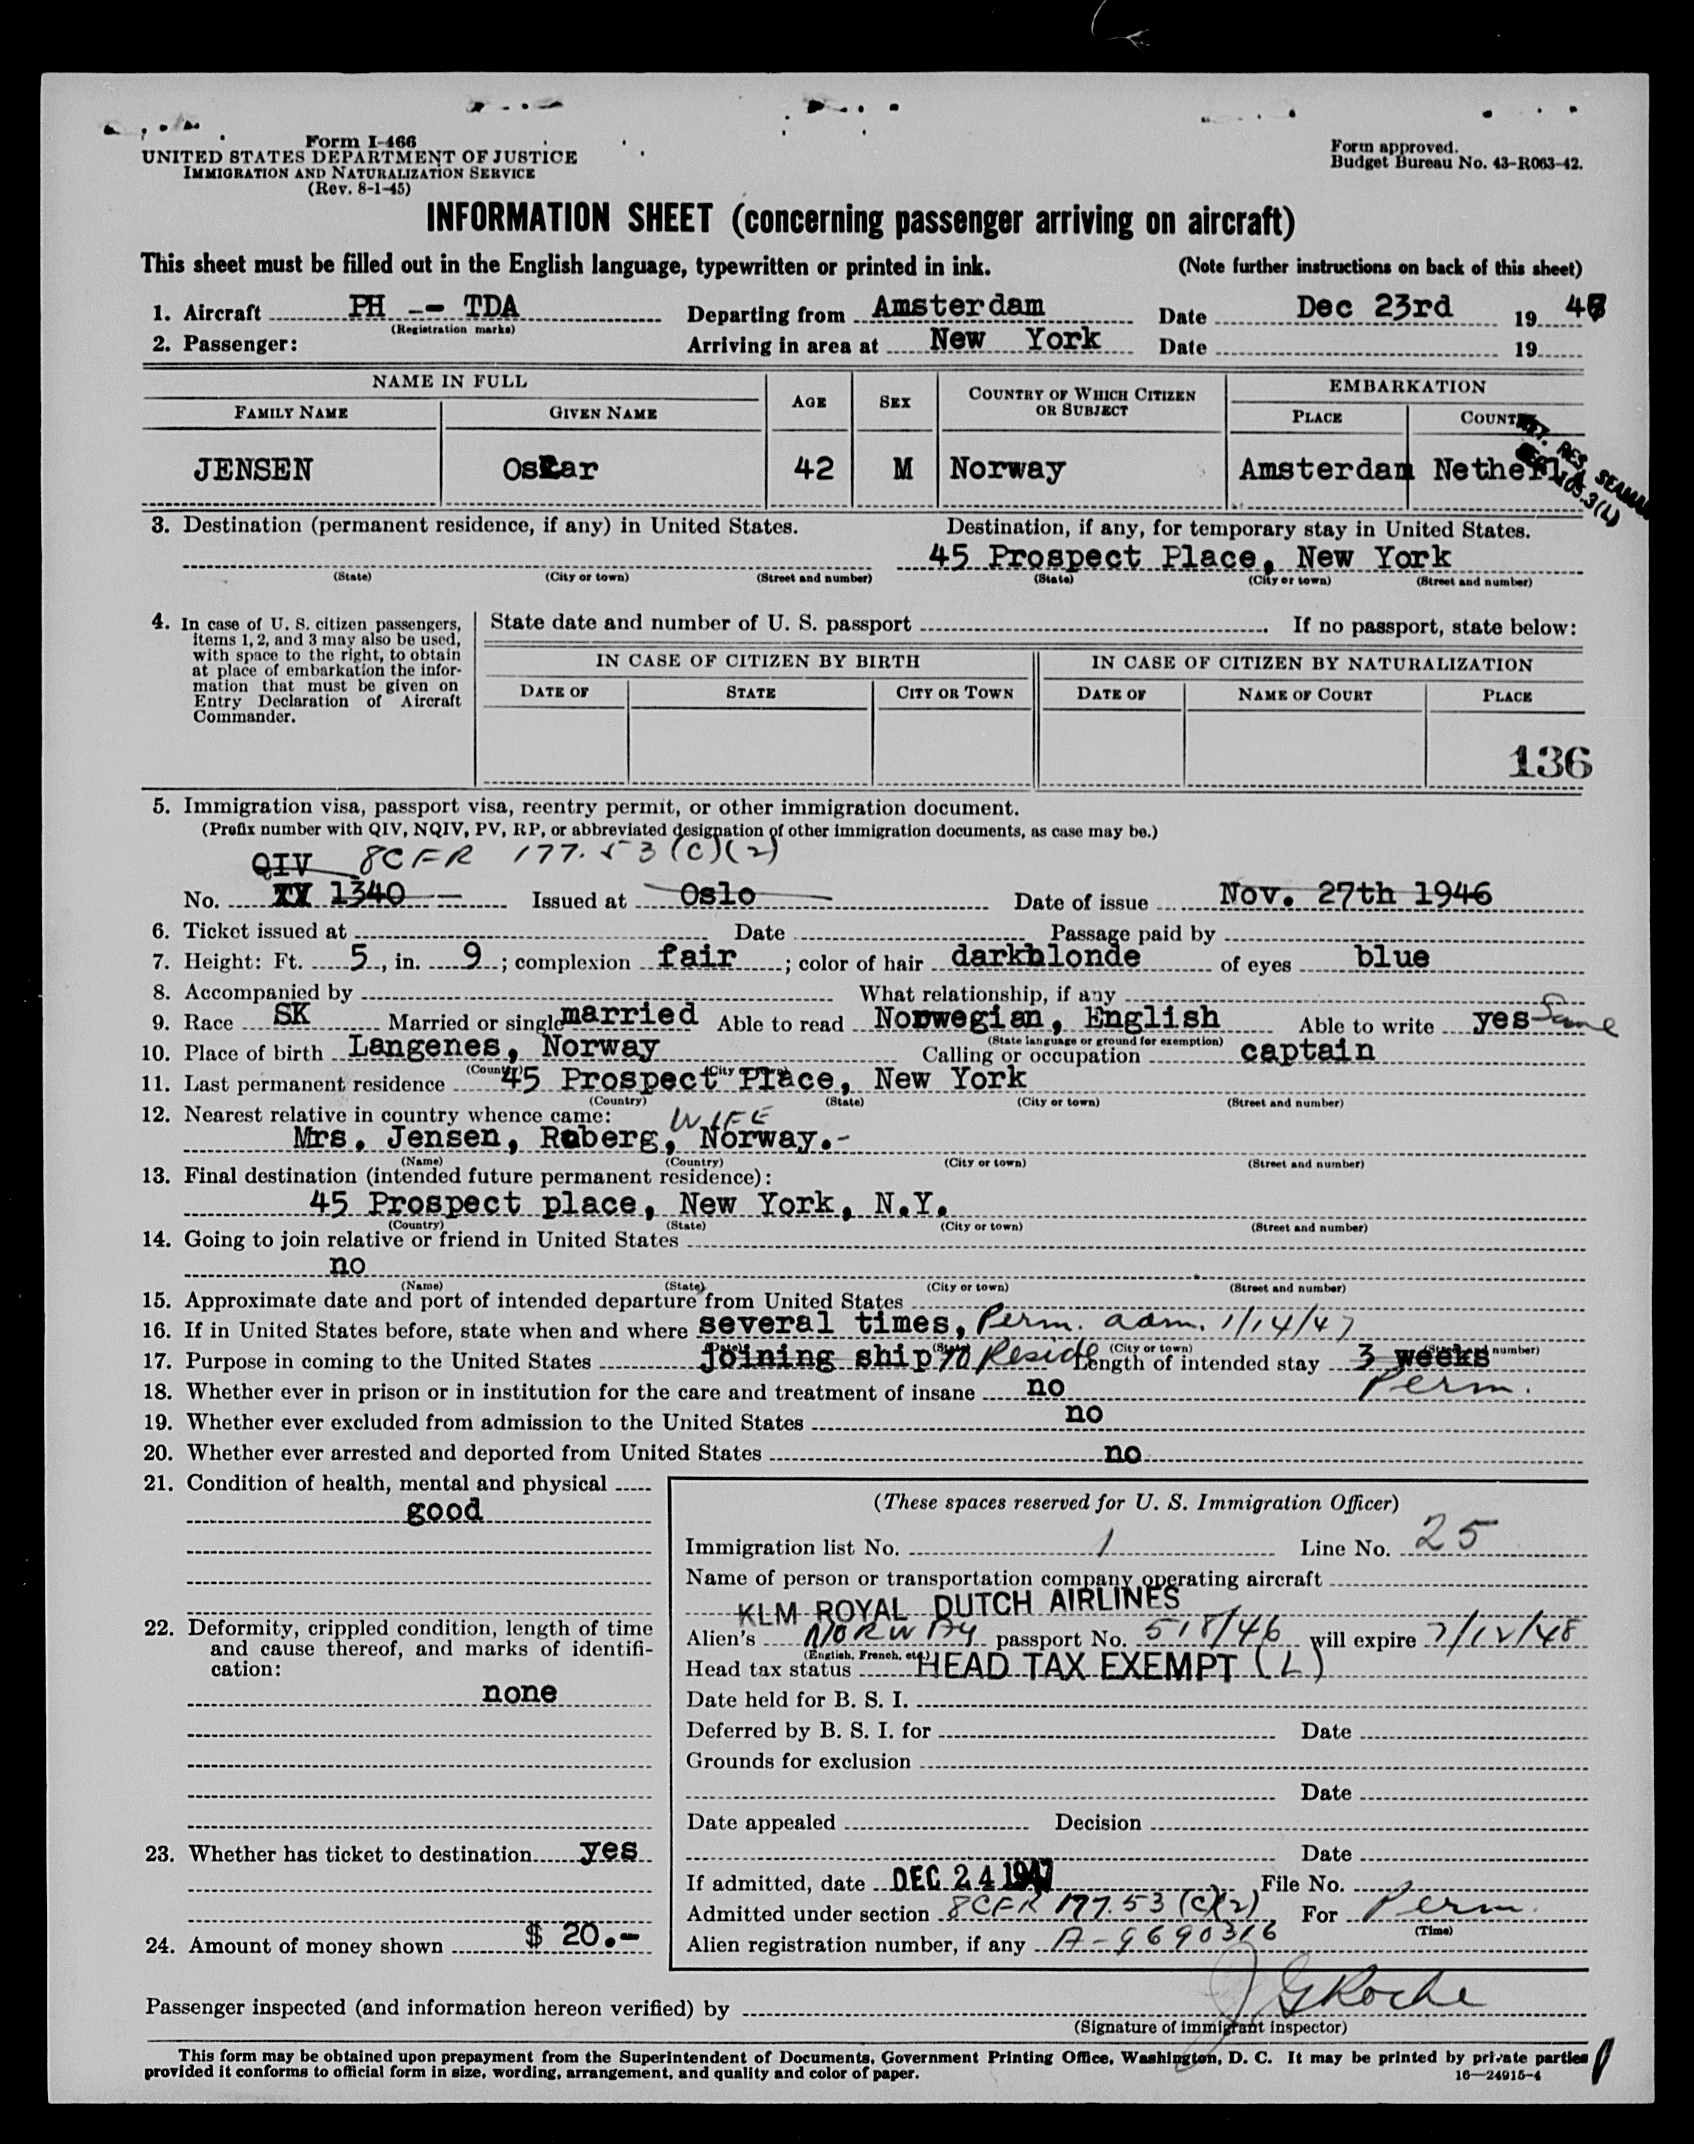 Form I-466
UNITED STATES DEPARTMENT OF JUSTICE
IMMIGRATION AND NATURALIZATION SERVICE
(Rev. 8-1-45)
Form approved.
Budget Bureau No. 43-R063-42.
INFORMATION SHEET (concerning passenger arriving on aircraft)
This sheet must be filled out in the English language, typewritten or printed in ink. (Note further instructions on back of this sheet)
1. Aircraft PH -- TDA Departing from Amsterdam Date Dec 23rd 1947
(Registration marks)
2. Passenger: Arriving in area at New York Date 19
NAME IN FULL AGE SEX COUNTRY OF WHICH CITIZEN OR SUBJECT EMBARKATION
FAMILY NAME GIVEN NAME PLACE COUNTRY
JENSEN Oskar 42 M Norway Amsterdam Netherl
RES. SEAMAN
105.3(L)
3. Destination (permanent residence, if any) in United States. Destination, if any, for temporary stay in United States.
45 Prospect Place, New York
(State) (City or town) (Street and number) (State) (City or town) (Street and number)
4. In case of U. S. citizen passengers, items 1, 2, and 3 may also be used, with space to the right, to obtain at place of embarkation the information that must be given on Entry Declaration of Aircraft Commander.
State date and number of U. S. passport If no passport, state below:
IN CASE OF CITIZEN BY BIRTH IN CASE OF CITIZEN BY NATURALIZATION
DATE OF STATE CITY OR TOWN DATE OF NAME OF COURT PLACE
136
5. Immigration visa, passport visa, reentry permit, or other immigration document.
(Prefix number with QIV, NQIV, PV, RP, or abbreviated designation of other immigration documents, as case may be.)
QIV 8CFR 177.53(C)(2)
No. XX 1340 Issued at Oslo Date of issue Nov. 27th 1946
6. Ticket issued at Date Passage paid by
7. Height: Ft. 5, in. 9; complexion fair; color of hair darkblonde of eyes blue
8. Accompanied by What relationship, if any
9. Race SK Married or single married Able to read Norwegian, English Able to write yes Same
(State language or ground for exemption)
10. Place of birth Langenes, Norway Calling or occupation captain
(Country) (City or town)
11. Last permanent residence 45 Prospect Place, New York
(Country) (State) (City or town) (Street and number)
12. Nearest relative in country whence came: WIFE
Mrs. Jensen, Roberg, Norway.-
(Name) (Country) (City or town) (Street and number)
13. Final destination (intended future permanent residence):
45 Prospect place, New York, N.Y.
(Country) (State) (City or town) (Street and number)
14. Going to join relative or friend in United States
no
(Name) (State) (City or town) (Street and number)
15. Approximate date and port of intended departure from United States
16. If in United States before, state when and where several times, Perm. adm. 1/14/47
(Date) (State) (City or town) (Street and number)
17. Purpose in coming to the United States joining ship To Reside Length of intended stay 3 weeks
Perm.
18. Whether ever in prison or in institution for the care and treatment of insane no
19. Whether ever excluded from admission to the United States no
20. Whether ever arrested and deported from United States no
21. Condition of health, mental and physical
good
22. Deformity, crippled condition, length of time and cause thereof, and marks of identification:
none
23. Whether has ticket to destination yes
24. Amount of money shown $ 20.-
(These spaces reserved for U. S. Immigration Officer)
Immigration list No. 1 Line No. 25
Name of person or transportation company operating aircraft
KLM ROYAL DUTCH AIRLINES
Alien's NORWAY passport No. 518/46 will expire 7/12/48
(English, French, etc.)
Head tax status HEAD TAX EXEMPT (L)
Date held for B. S. I.
Deferred by B. S. I. for Date
Grounds for exclusion
Date
Date appealed Decision
Date
If admitted, date DEC 24 1947 File No.
Admitted under section 8CFR 177.53(C)(2) For Perm.
(Time)
Alien registration number, if any A-6690316
Passenger inspected (and information hereon verified) by J G Roche
(Signature of immigrant inspector)
This form may be obtained upon prepayment from the Superintendent of Documents, Government Printing Office, Washington, D. C. It may be printed by private parties
provided it conforms to official form in size, wording, arrangement, and quality and color of paper. 16—24915-4